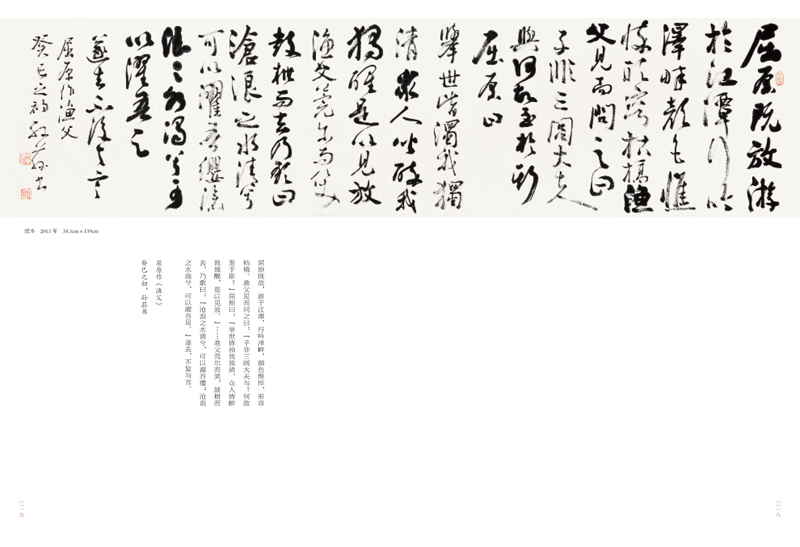 屈原既放游
於江潭行吟
澤畔顏色憔
悴形容枯槁漁
父見而問之曰
子非三閭大夫
與何故至於斯
屈原曰
舉世皆濁我獨
清衆人皆醉我
獨醒是以見放
漁父莞尔而笑
鼓枻而去乃歌曰
滄浪之水清兮
可以濯吾纓滄
浪之水濁兮可
以濯吾足
遂去不復與言
屈原作漁父
癸巳之初孙荪书
纸本 2013年 34.5cm×139cm
屈原既放,游于江潭,行吟泽畔,颜色憔悴,形容
枯槁。渔父见而问之曰:“子非三闾大夫与?何故
至于斯?”屈原曰:“举世皆浊我独清,众人皆醉
我独醒,是以见放。”……渔父莞尔而笑,鼓枻而
去,乃歌曰:“沧浪之水清兮,可以濯吾缨;沧浪
之水浊兮,可以濯吾足。”遂去,不复与言。
屈原作《渔父》
癸巳之初,孙荪书
〇一八
〇一九